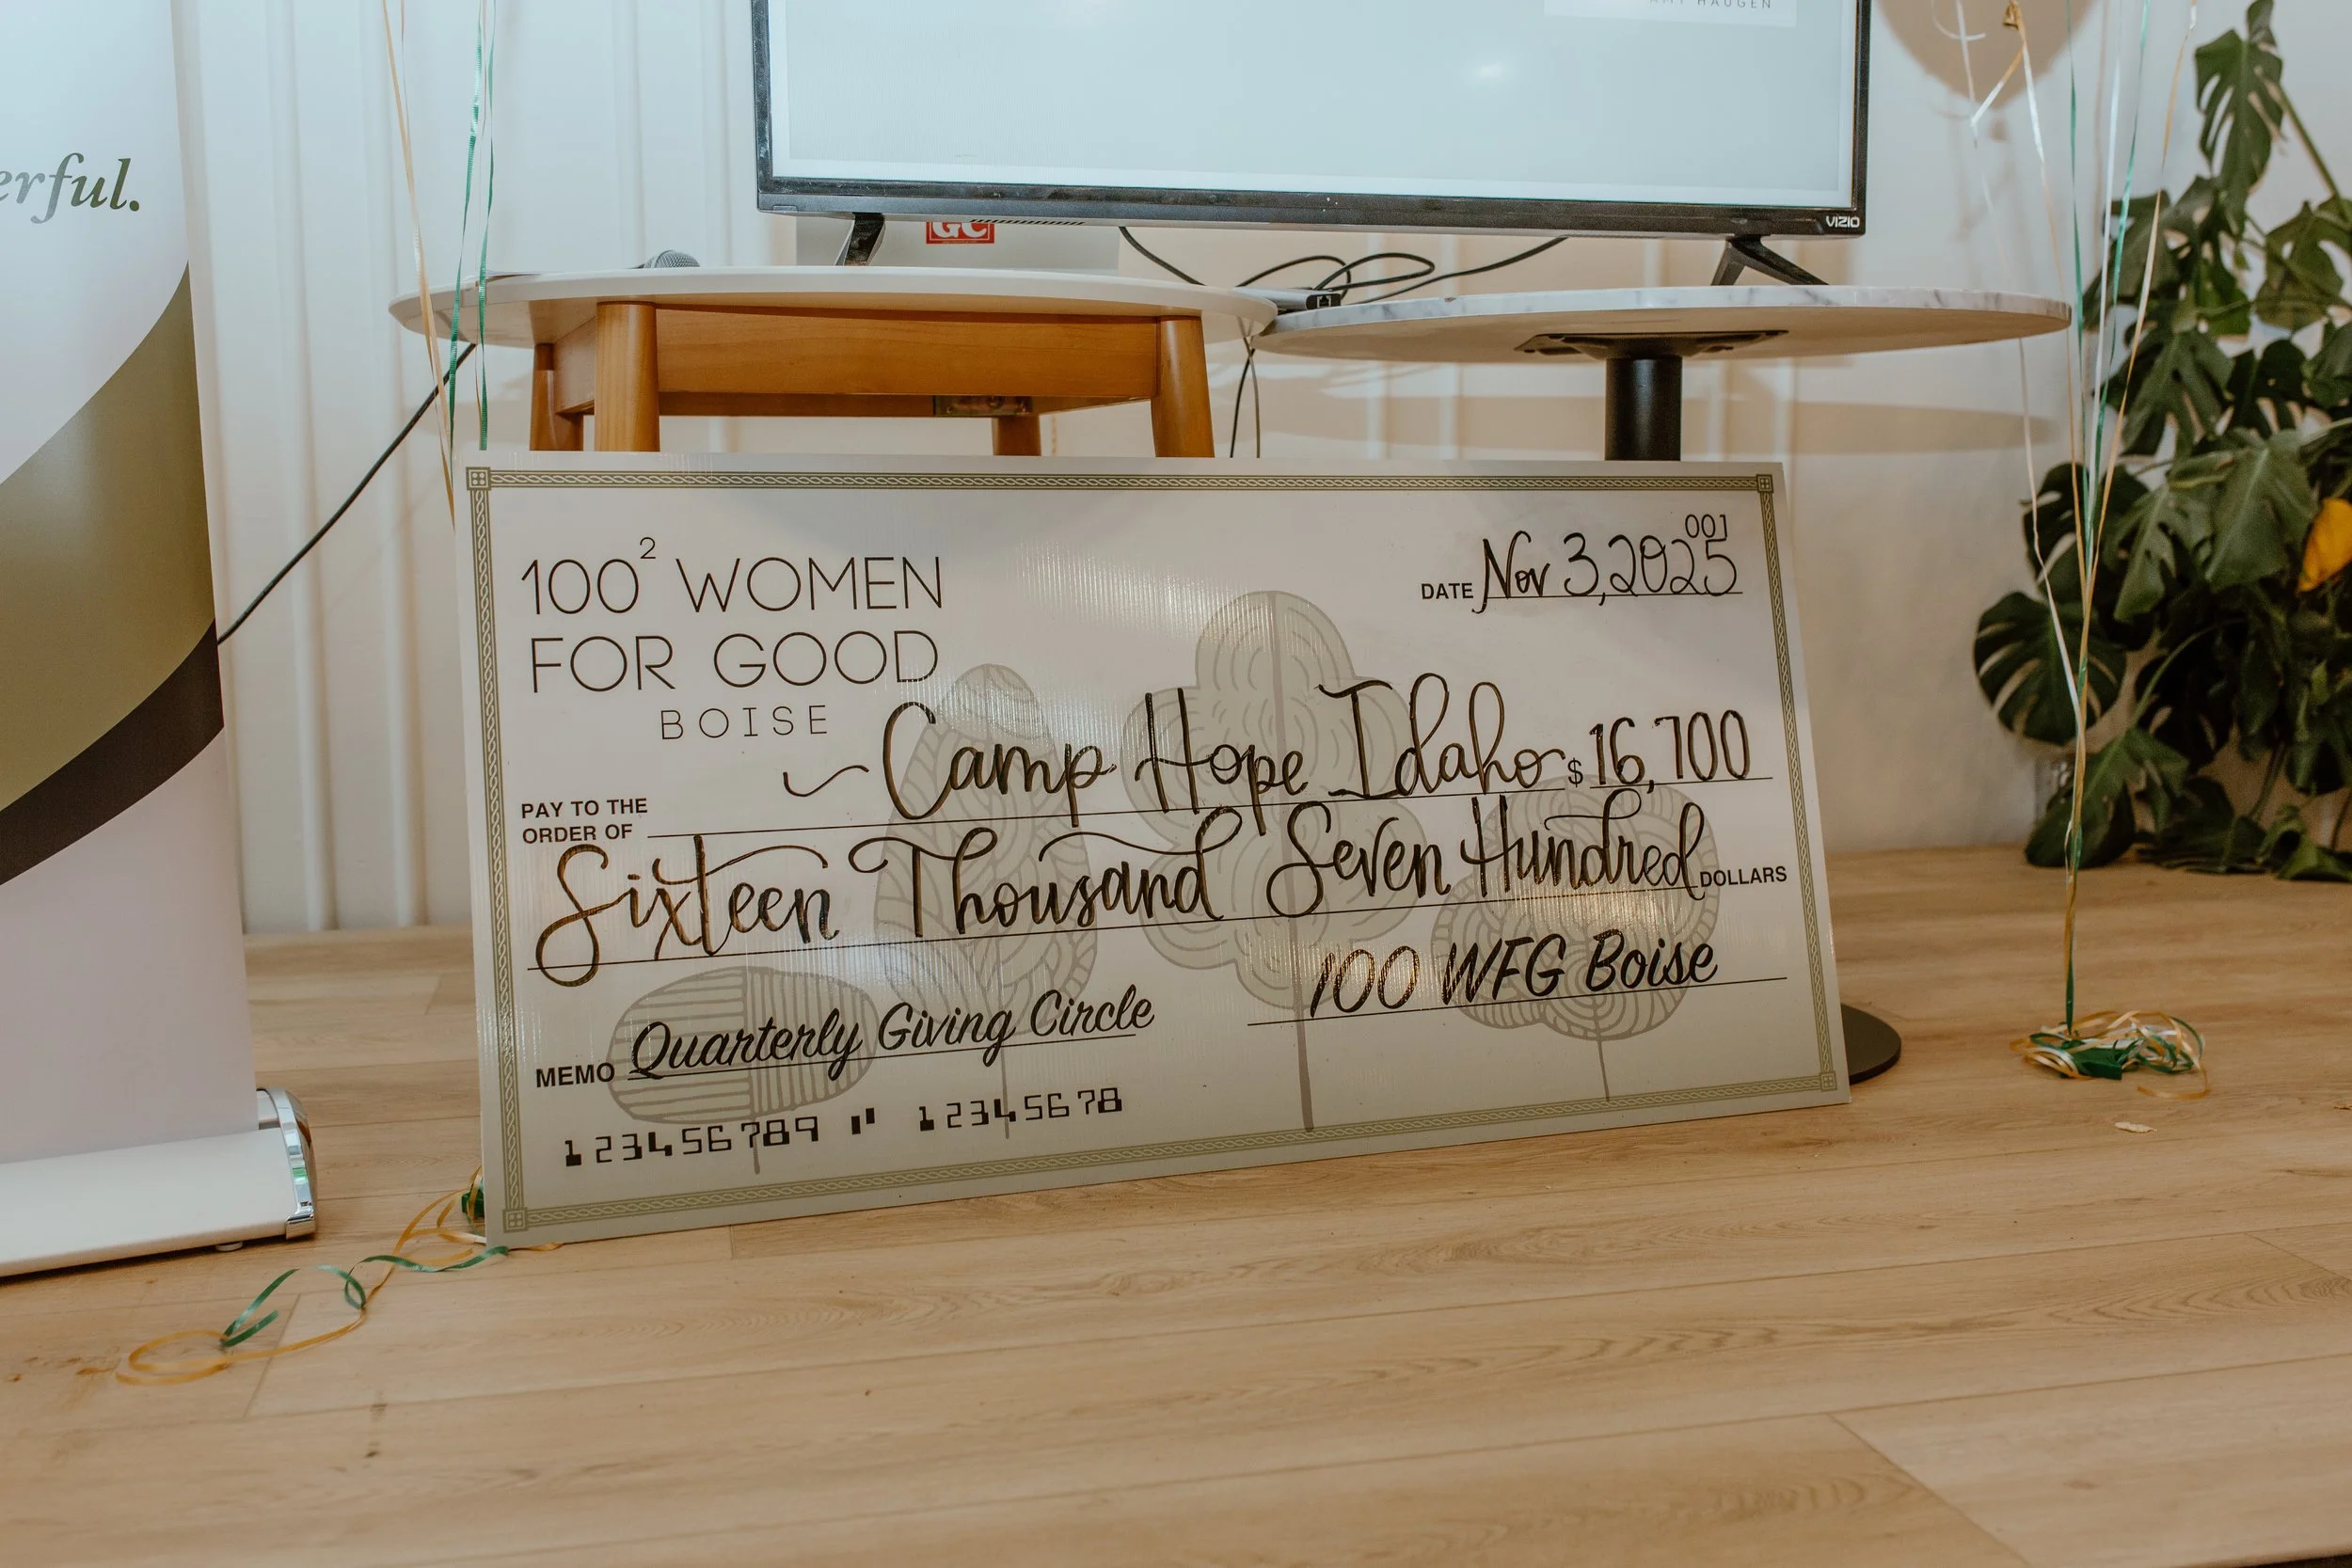 HAUGEN
erful.
GC
VIZIO
100² WOMEN
FOR GOOD
BOISE
001
DATE Nov 3, 2025
PAY TO THE
ORDER OF Camp Hope Idaho $ 16,700
Sixteen Thousand Seven Hundred DOLLARS
100 WFG Boise
MEMO Quarterly Giving Circle
123456789 12345678